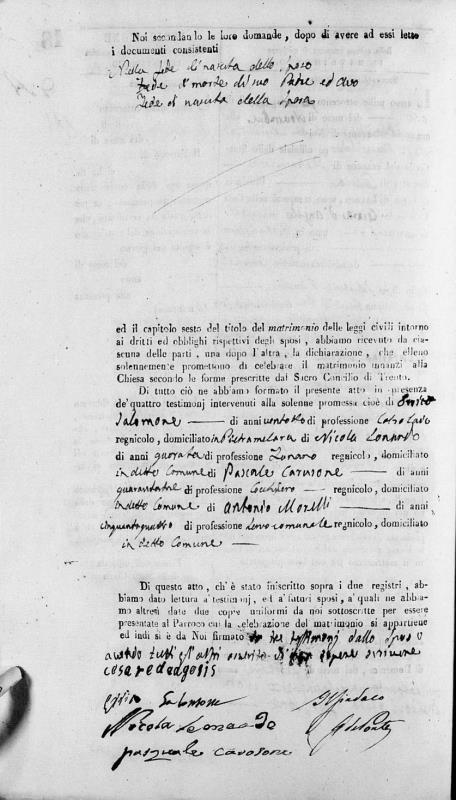 Noi secondando le loro domande, dopo di avere ad essi letto
i documenti consistenti
Nella fede di nascita dello sposo
Fede di morte di suo Padre ed avo
Fede di nascita della sposa
ed il capitolo sesto del titolo del matrimonio delle leggi civili intorno
ai dritti ed obblighi rispettivi degli sposi, abbiamo ricevuto da cia-
scuna delle parti, una dopo l'altra, la dichiarazione, che elleno
solennemente promettono di celebrare il matrimonio innanzi alla
Chiesa secondo le forme prescritte dal Sacro Concilio di Trento.
Di tutto ciò ne abbiamo formato il presente atto in presenza
de'quattro testimonj intervenuti alla solenne promessa cioè di
Salomone di anni ventotto di professione
regnicolo, domiciliato in Pietramelara di Nicola Leonardo
di anni di professione regnicolo, domiciliato
in detto Comune di Pascale Carusone di anni
quarantatre di professione regnicolo, domiciliato
in detto Comune di Antonio Morelli di anni
cinquantaquattro di professione Servo comunale regnicolo, domiciliato
in detto Comune
Di questo atto, ch'è stato iniscritto sopra i due registri, ab-
biamo dato lettura a'testimonj, ed a'futuri sposi, a'quali ne abbia-
mo altresì date due copie uniformi da noi sottoscritte per essere
presentate al Parroco cui la celebrazione del matrimonio si appartiene
ed indi si è da Noi firmato tre testimonj dallo sposo
avendo tutti gl'altri di non sapere scrivere
cesare
Salomone Il Sindaco
Nicola Leonardo
pasquale carosone